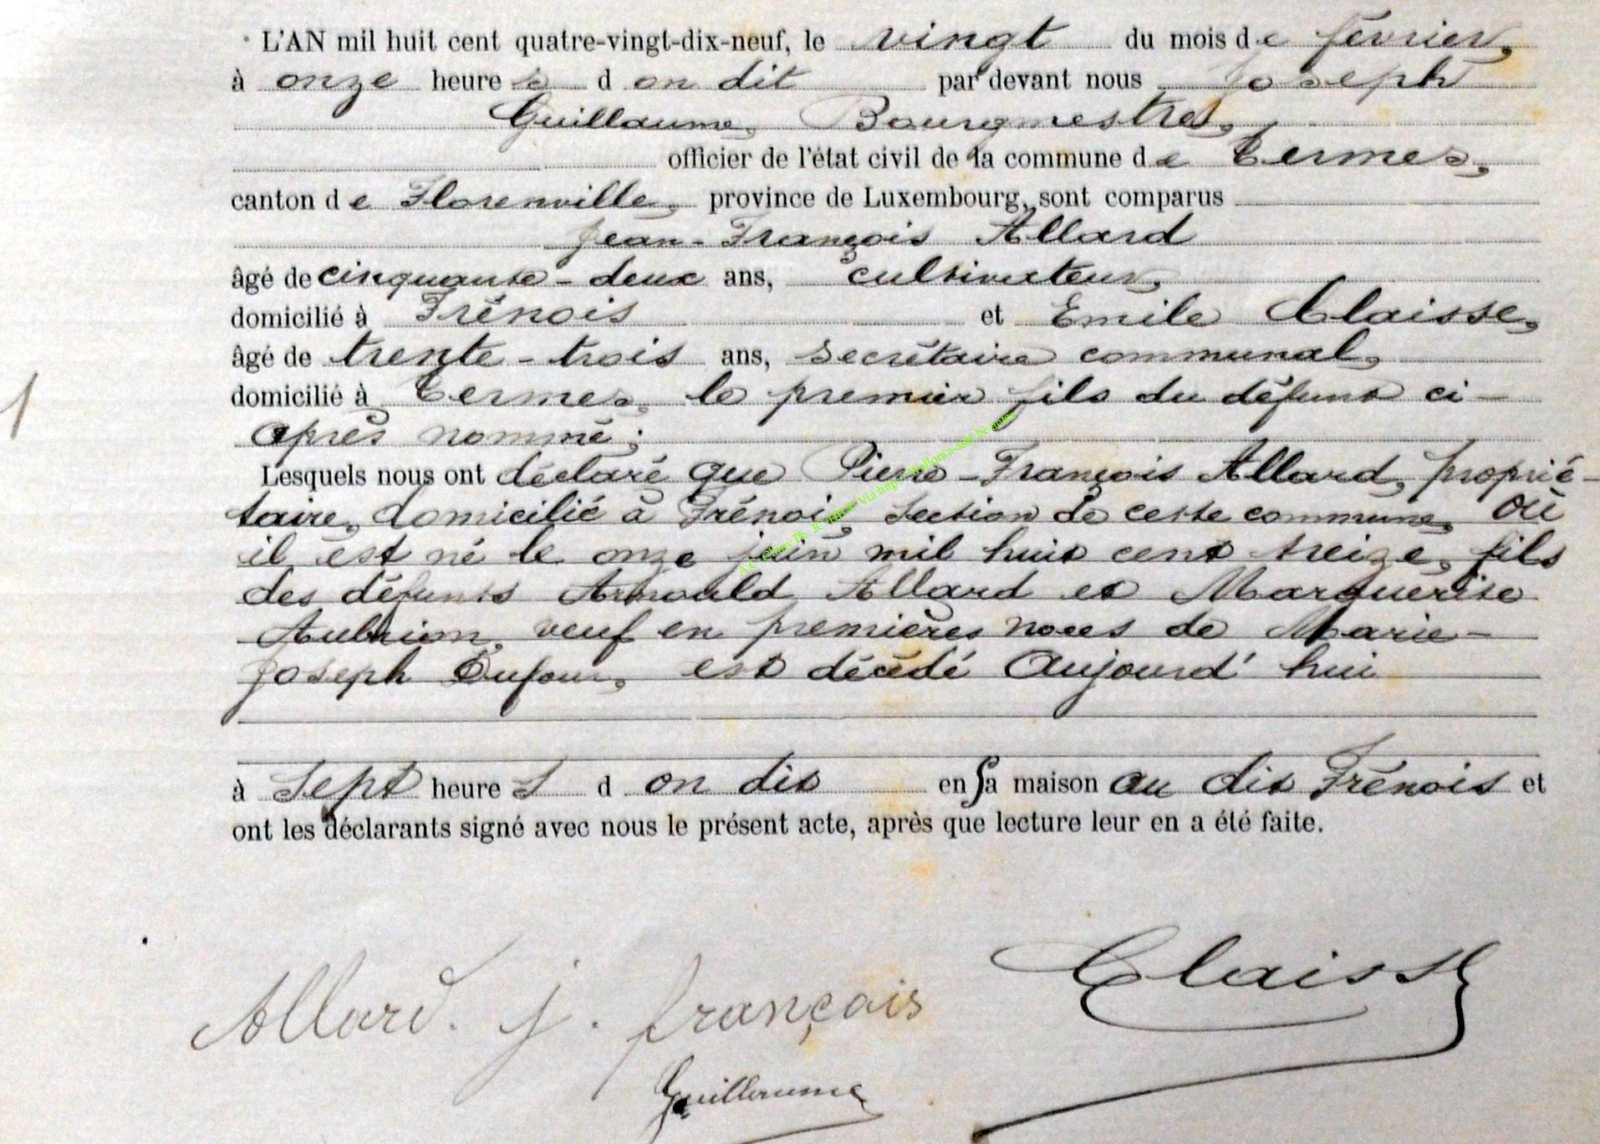 L'AN mil huit cent quatre-vingt-dix-neuf, le vingt du mois de février,
à onze heures d on dit par devant nous Joseph
Guillaume, Bourgmestre,
officier de l'état civil de la commune de Termes,
canton de Florenville, province de Luxembourg, sont comparus
Jean-François Allard
âgé de cinquante-deux ans, cultivateur,
domicilié à Frénois et Emile Claisse,
âgé de trente-trois ans, secrétaire communal,
domicilié à Termes, le premier fils du défunt ci-
après nommé;
Lesquels nous ont déclaré que Pierre-François Allard, proprié-
taire, domicilié à Frénois, section de cette commune, où
il est né le onze juin mil huit cent treize, fils
des défunts Arnould Allard et Marguerite
Aubrion, veuf en premières noces de Marie-
Joseph Dufour, est décédé aujourd'hui
à sept heures d on dit en sa maison au dit Frénois et
ont les déclarants signé avec nous le présent acte, après que lecture leur en a été faite.
Allard. j. françois
Claisse
Guillaume